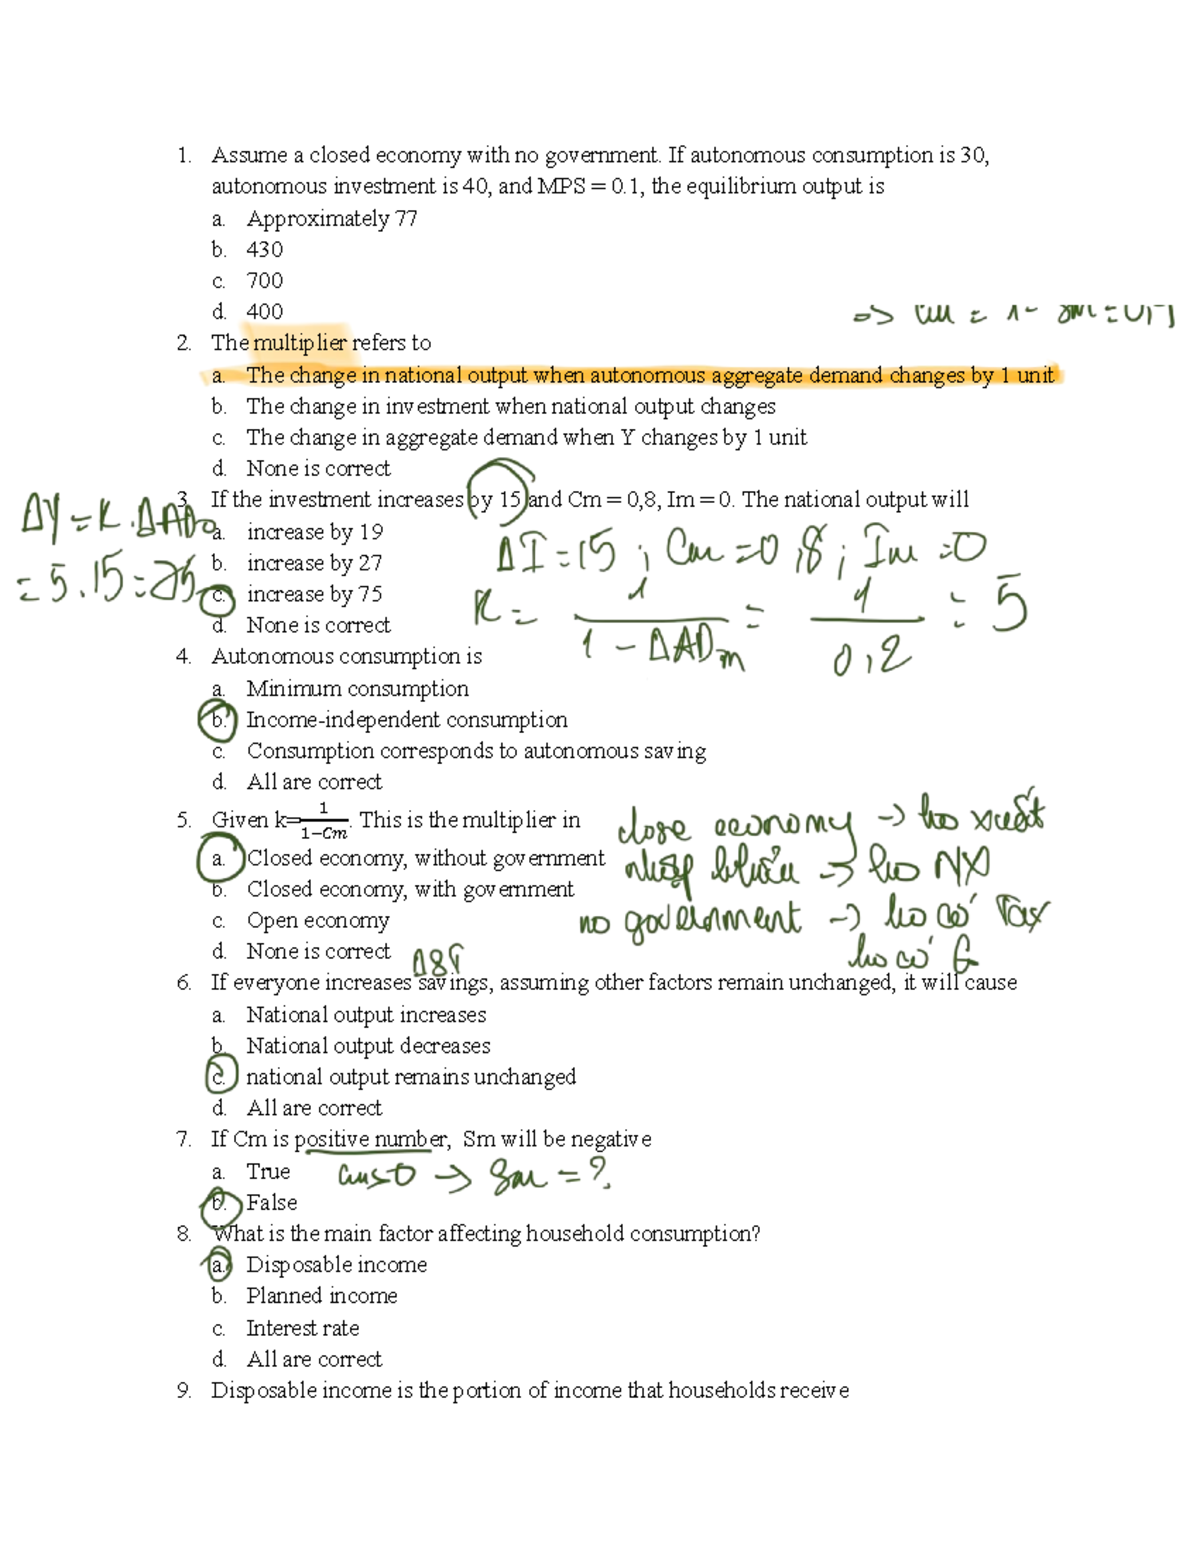 1. Assume a closed economy with no government. If autonomous consumption is 30,
autonomous investment is 40, and MPS = 0.1, the equilibrium output is
a. Approximately 77
b. 430
c. 700
d. 400
2. The multiplier refers to
a. The change in national output when autonomous aggregate demand changes by 1 unit
b. The change in investment when national output changes
c. The change in aggregate demand when Y changes by 1 unit
d. None is correct
3. If the investment increases by 15 and Cm = 0,8, Im = 0. The national output will
ΔY = K.ΔADo
a. increase by 19
ΔI = 15 ; Cm = 0,8 ; Im = 0
b. increase by 27
= 5.15 = 75
c. increase by 75
K = 1 / (1 - ΔADm) = 1 / 0,2 = 5
d. None is correct
4. Autonomous consumption is
a. Minimum consumption
b. Income-independent consumption
c. Consumption corresponds to autonomous saving
d. All are correct
5. Given k=1/(1−Cm). This is the multiplier in
close economy → ko xuất
a. Closed economy, without government
nhập khẩu → ko NX
b. Closed economy, with government
c. Open economy
no government → ko có Tax
d. None is correct
ko có G
6. If everyone increases savings, assuming other factors remain unchanged, it will cause
a. National output increases
b. National output decreases
c. national output remains unchanged
d. All are correct
7. If Cm is positive number, Sm will be negative
a. True
→ Sm = ?
b. False
8. What is the main factor affecting household consumption?
a. Disposable income
b. Planned income
c. Interest rate
d. All are correct
9. Disposable income is the portion of income that households receive